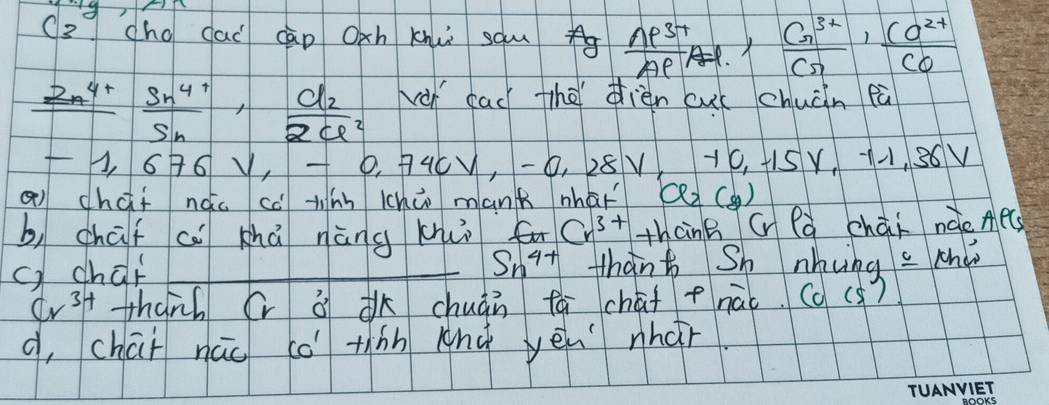 C3. cho các cặp Oxh khử sau Al³⁺/Al, Cr³⁺/Cr, Co²⁺/Co
Sn⁴⁺/Sn, Cl₂/2Cl⁻ với các thế điện cực chuẩn là
- 1, 676 V, - 0, 740V, - 0, 28 V, +0, 15 V, +1, 36 V
a) chất nào có tính khử mạnh nhất Cl₂ (g)
b) chất có khả năng khử Cr³⁺ thành Cr là chất nào Al(s
c) chất ______ Sn⁴⁺ thành Sn nhưng khử
Cr³⁺ thành Cr ở đk chuẩn là chất nào. Co (s)
d, chất nào có tính khử yếu nhất.
TUANVIET
BOOKS